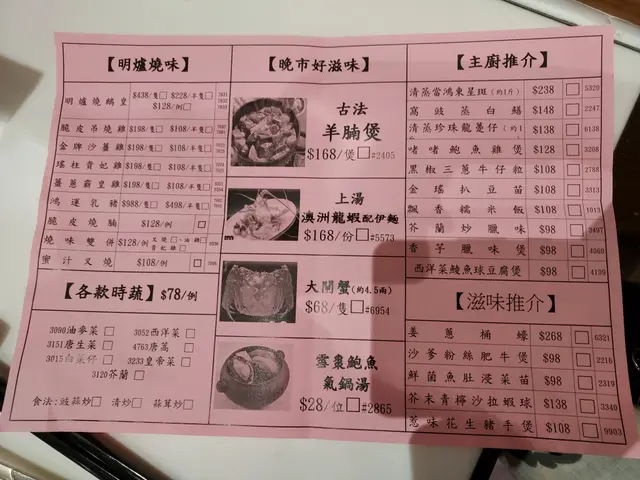 【明爐燒味】
明爐燒鵝皇 $438/隻□ $228/半隻□
$128/例□
脆皮吊燒雞 $198/隻□ $108/半隻□
金牌沙薑雞 $198/隻□ $108/半隻□
瑤柱貴妃雞 $198/隻□ $108/半隻□
薑蔥霸皇雞 $198/隻□ $108/半隻□
鴻運乳豬 $988/隻□ $498/半隻□
脆皮燒腩 $128/例□
燒味雙併 $128/例□
蜜汁叉燒 $108/例□
【各款時蔬】$78/例
3090油麥菜□ 3052西洋菜□
3151唐生菜□ 4763唐萵□
3015白菜仔□ 3233皇帝菜□
3120芥蘭□
食法:豉蒜炒□ 清炒□ 蒜茸炒□
【晚市好滋味】
古法
羊腩煲
$168/煲□#2405
上湯
澳洲龍蝦配伊麵
$168/份□#5573
大閘蟹(約4.5兩)
$68/隻□#6954
雪棗鮑魚
氣鍋湯
$28/位□#2865
【主廚推介】
清蒸當鴻東星斑(約1斤) $238 □ 5320
窩豉蒸白鱔 $148 □ 2247
清蒸珍珠龍躉仔 $138 □ 6138
啫啫鮑魚雞煲 $128 □ 3208
黑椒三蔥牛仔粒 $108 □ 2788
金瑤扒豆苗 $108 □ 3313
飄香糯米飯 $108 □ 1013
芥蘭炒臘味 $98 □ 3497
香芋臘味煲 $98 □ 4069
西洋菜鯪魚球豆腐煲 $98 □ 4199
【滋味推介】
姜蔥桶蠔 $268 □ 6321
沙爹粉絲肥牛煲 $98 □ 2216
鮮菌魚肚浸菜苗 $98 □ 2319
芥末青檸沙拉蝦球 $138 □ 3340
惹味花生豬手煲 $108 □ 9903